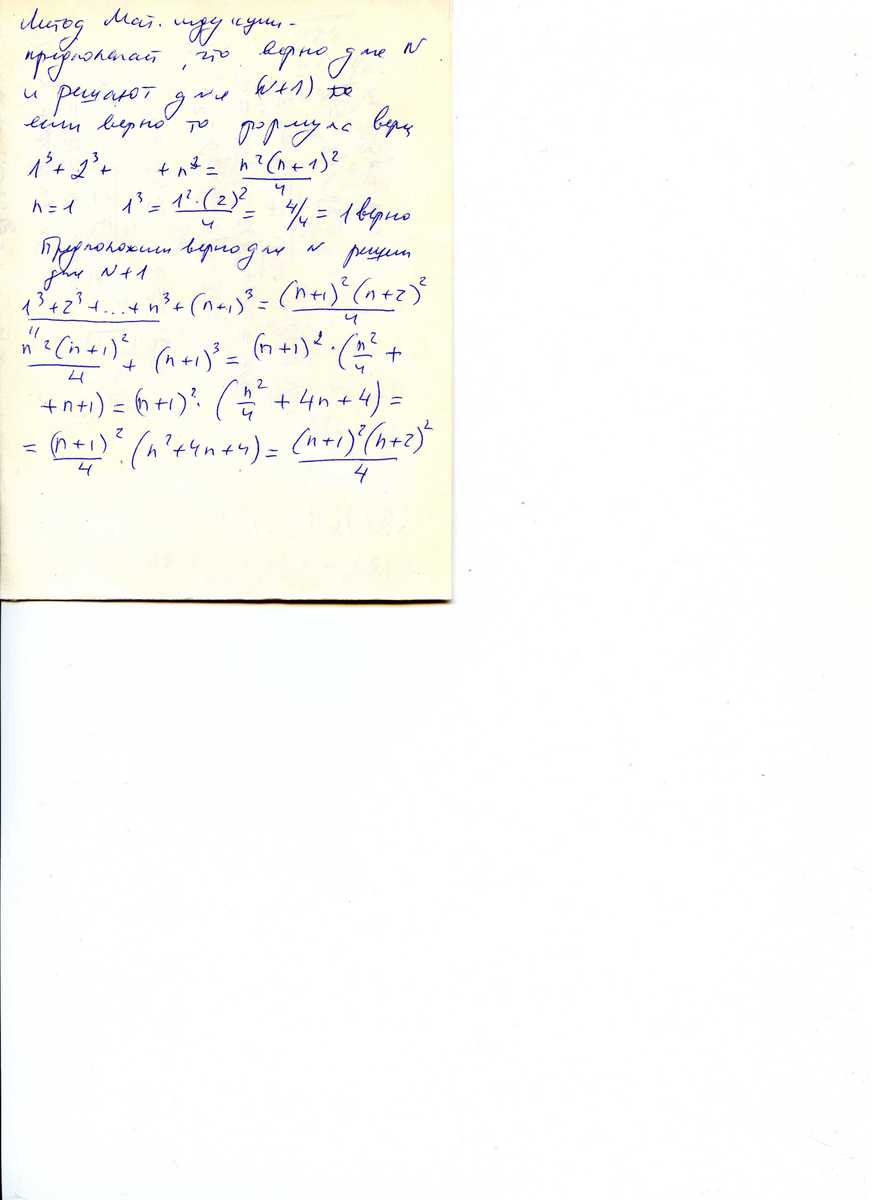 Метод Мат. индукции -
предполагают, что верно для N
и решают для (N+1)
если верно то формула верн
1³ + 2³ + + n³ = n²(n+1)²/4
n=1 1³ = 1²·(2)²/4 = 4/4 = 1 верно
Предположим верно для N решим
для N+1
1³+2³+...+n³+(n+1)³ = (n+1)²(n+2)²/4
"
n²(n+1)²/4 + (n+1)³ = (n+1)²·(n²/4 +
+n+1) = (n+1)²·(n²/4 + 4n + 4) =
= (n+1)²/4 · (n²+4n+4) = (n+1)²(n+2)²/4